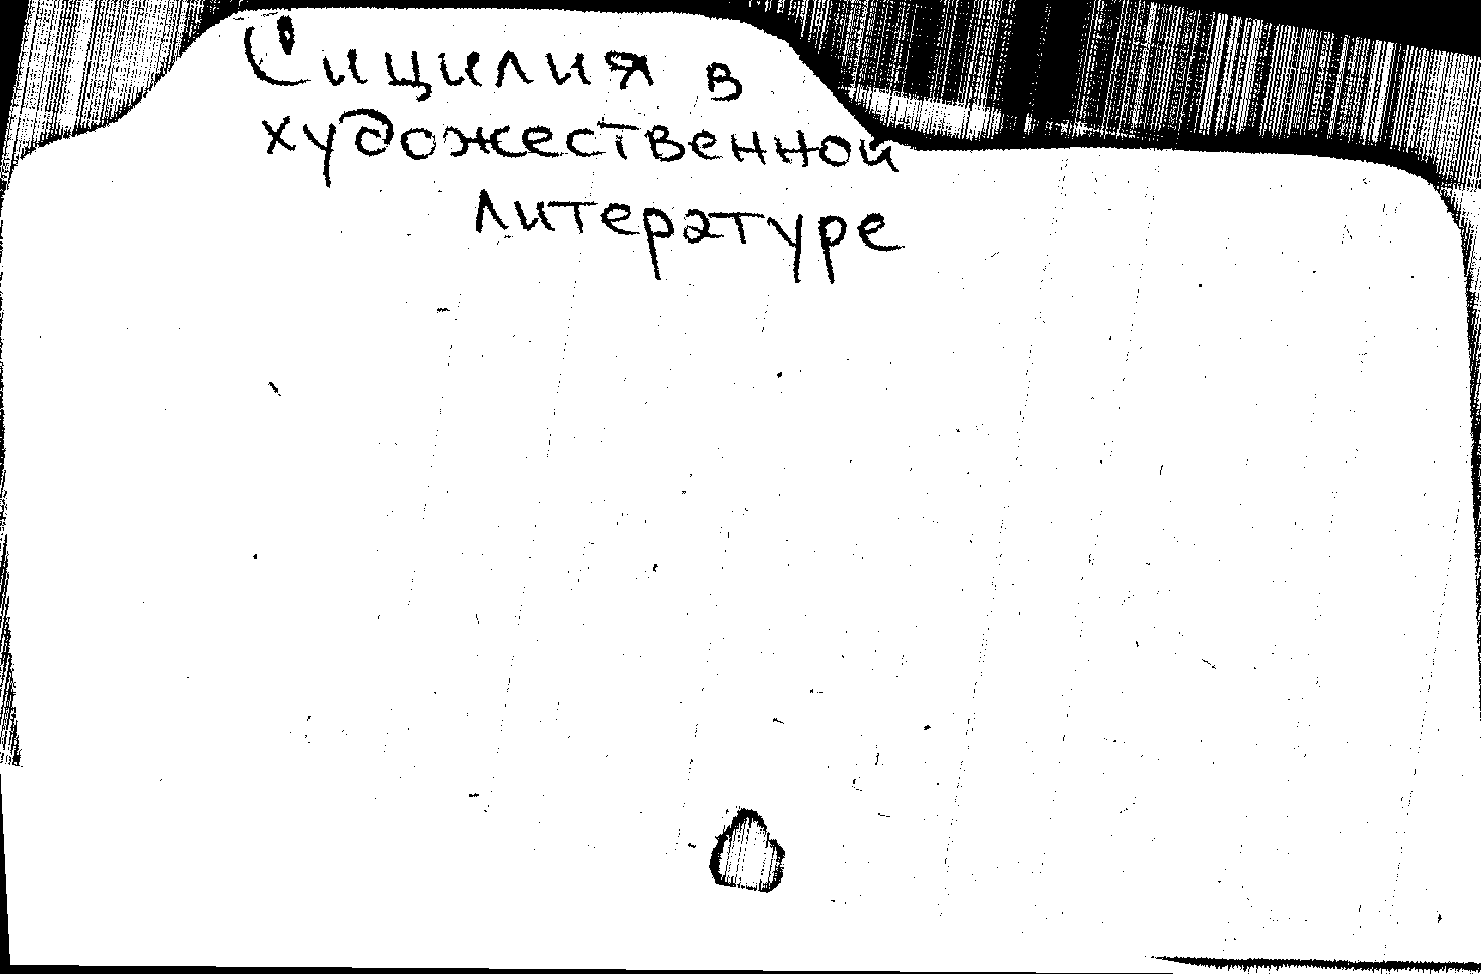 Сицилия в
художественной
литературе